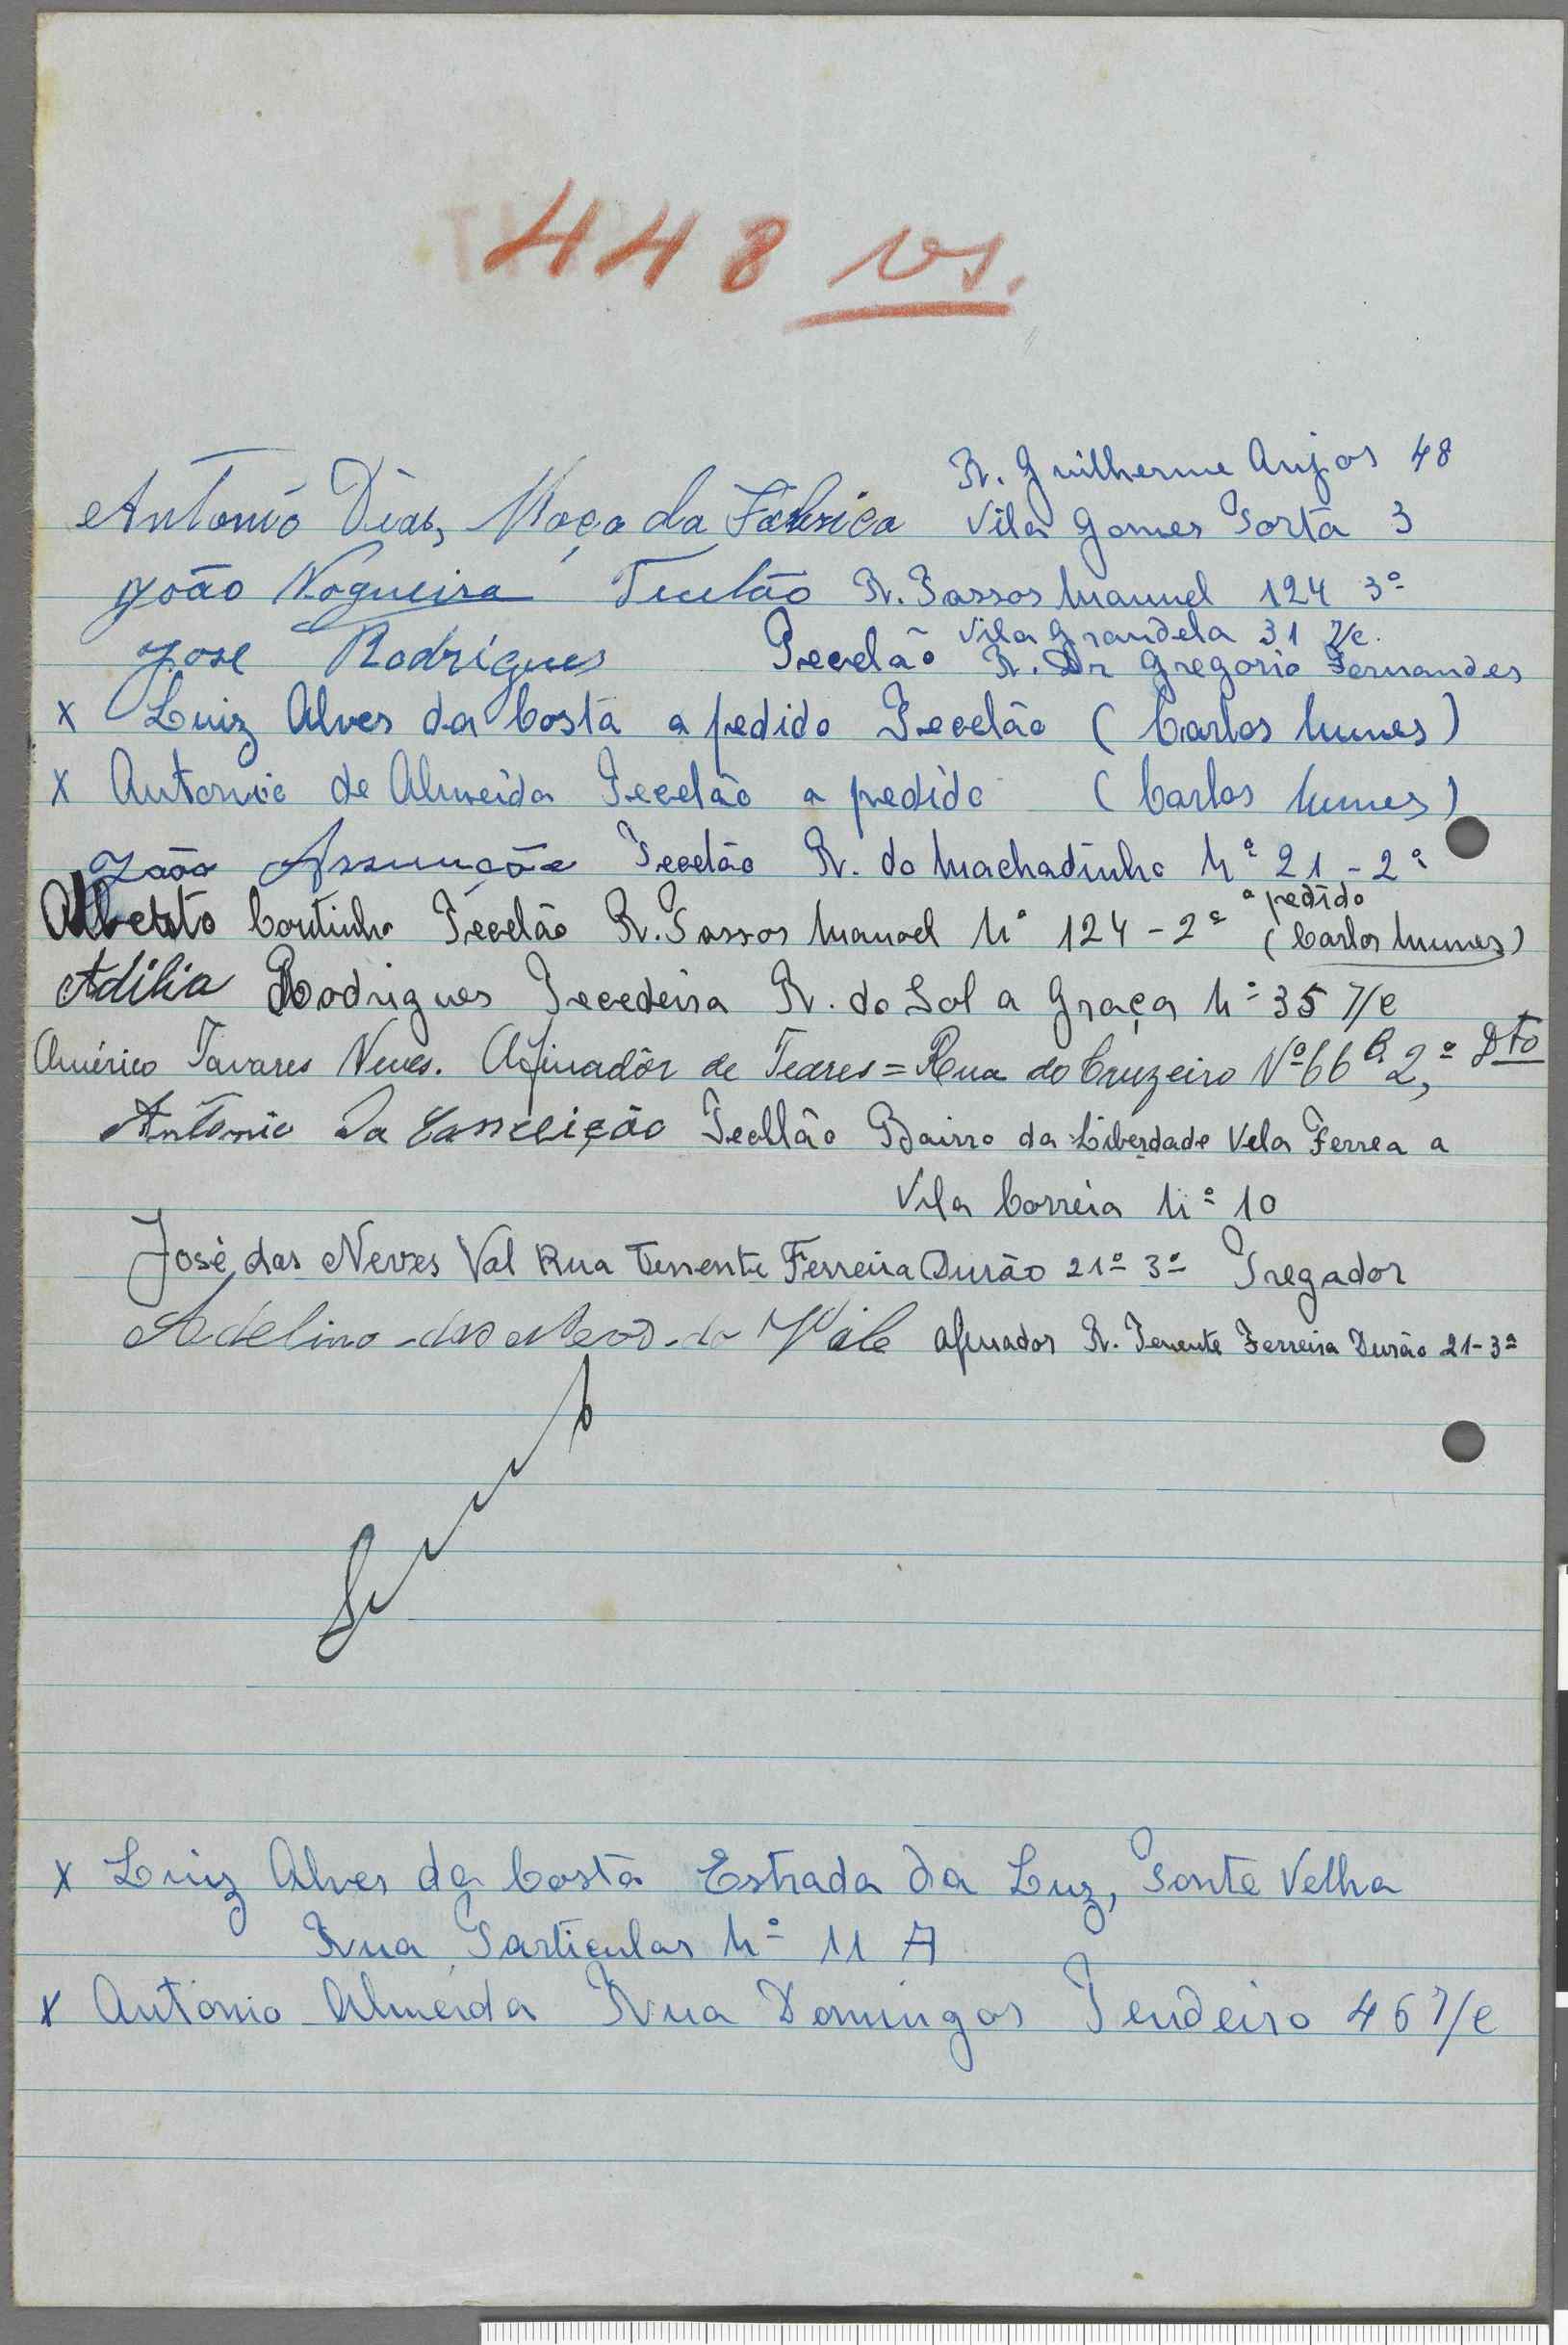 448 vs.
R. Guilherme Anjos 48
António Dias, Moço da Fabrica Vila Gomes Porta 3
João Nogueira Tecelão R. Passos Manuel 124 3º
Vila Grandela 31 r/c.
José Rodrigues Tecelão R. Dr Gregorio Fernandes
x Luiz Alves da Costa a pedido Tecelão (Carlos Nunes)
x Antonio de Almeida Tecelão a pedido (Carlos Nunes)
João Assunção Tecelão R. do Machadinho Nº 21 - 2º
a pedido
Alberto Coutinho Tecelão R. Passos Manoel Nº 124 - 2º (Carlos Nunes)
Adilia Rodrigues Tecedeira R. do Sol a Graça Nº 35 r/c
Américo Tavares Neves. Afinadôr de Teares = Rua do Cruzeiro Nº 66 2,º Dto
Antonio Da Conceição Tecelão Bairro da Liberdade Vela Ferrea a
Vila Correia Nº 10
José das Neves Val Rua Tenente Ferreira Durão 21º 3º Pregador
Adelino das Neves do Vale afinador R. Tenente Ferreira Durão 21-3º
x Luiz Alves da Costa Estrada da Luz, Fonte Velha
Rua Particular Nº 11 A
x António Almeida Rua Domingos Tendeiro 46 r/c